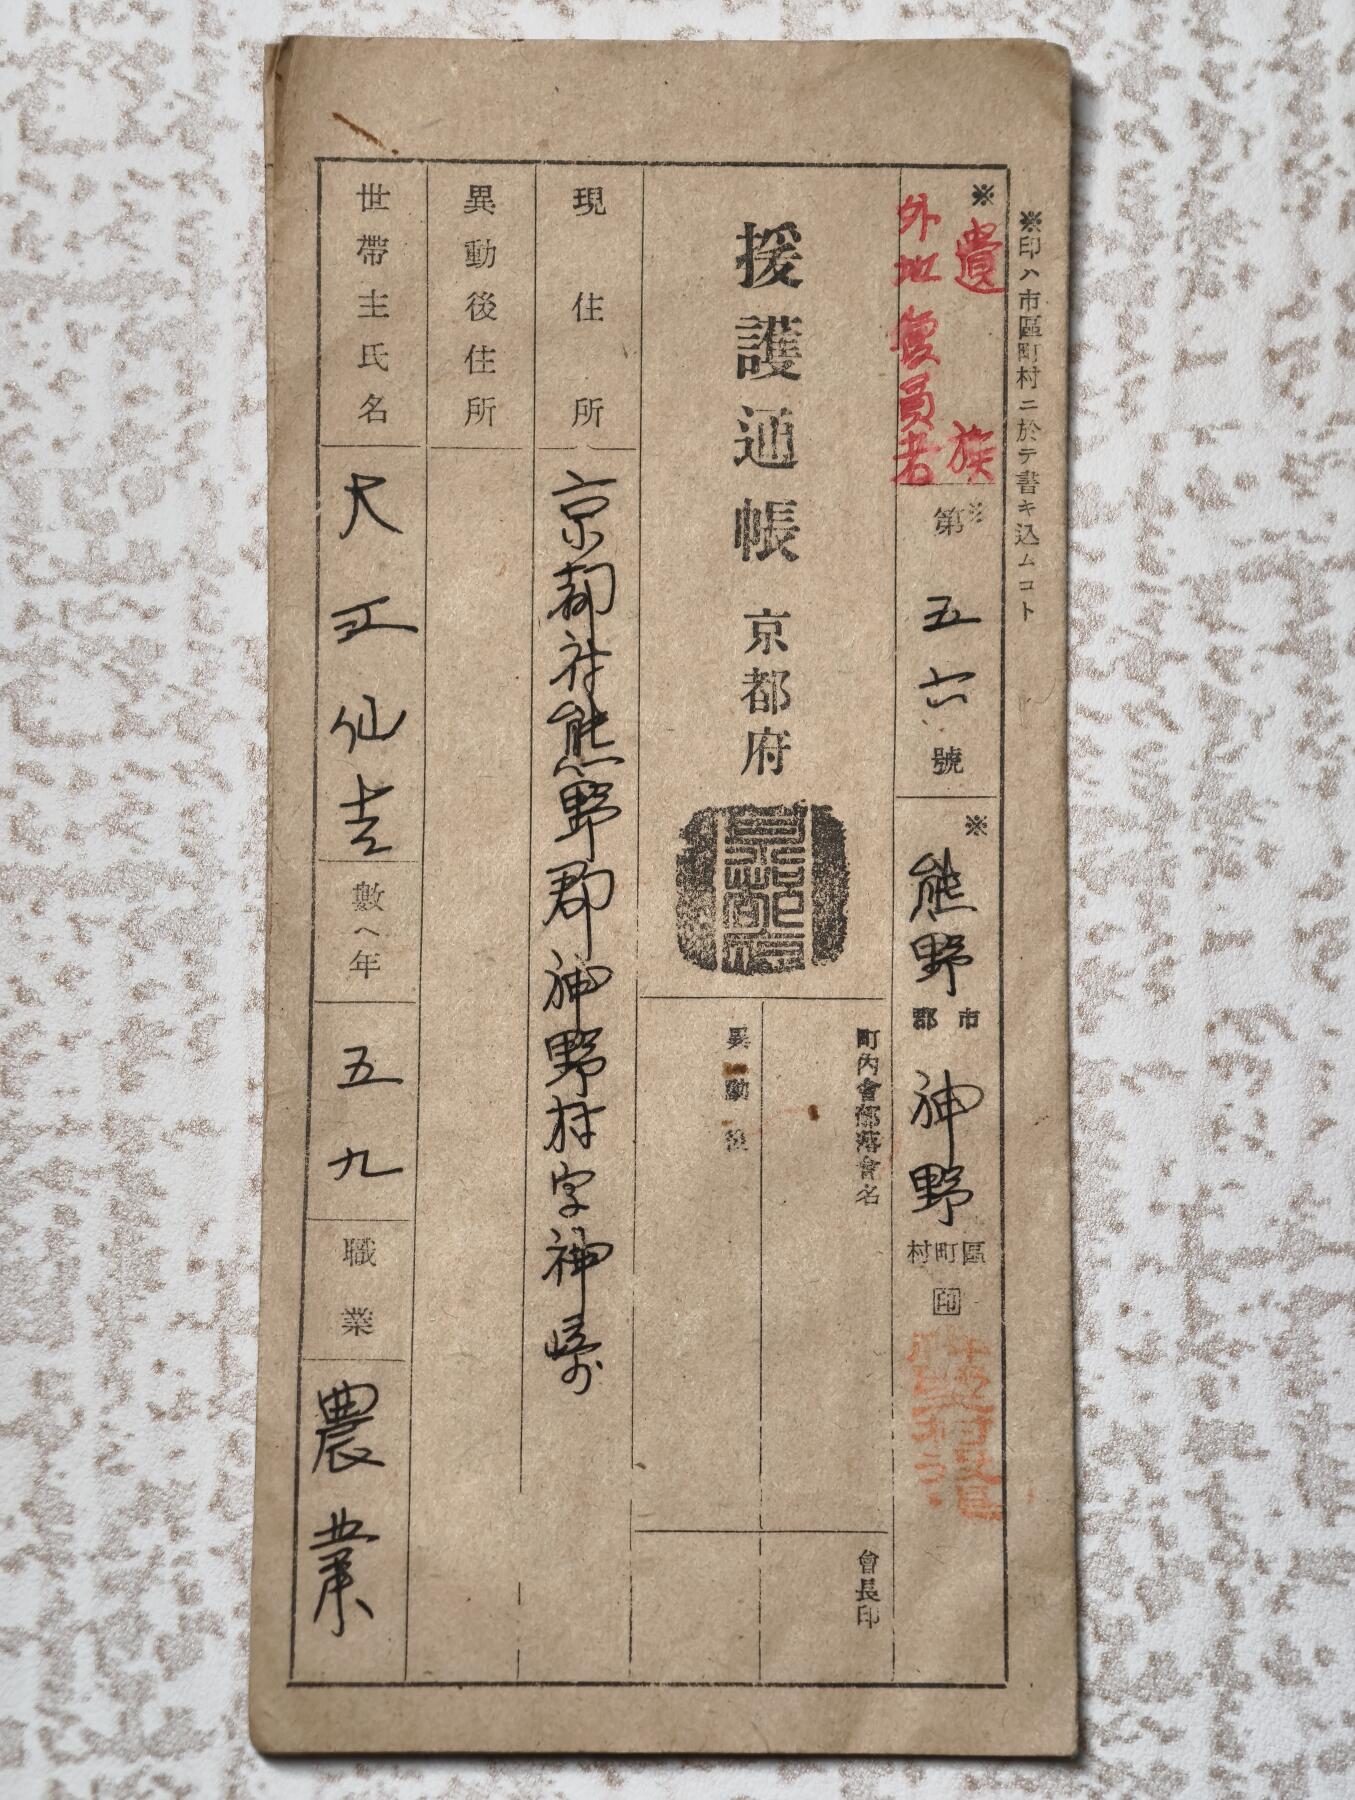 ※印ハ市區町村ニ於テ書キ込ムコト
※
遺族
外地
員者
※
第五六號
※
熊野
市
郡
神野
區
町
村
印
援護通帳 京都府
京都府
町內會部落會名
異動後
會長印
現住所
京都府熊野郡神野村字神崎
異動後住所
世帶主氏名
大正仙吉
數ヘ年
五九
職業
農業